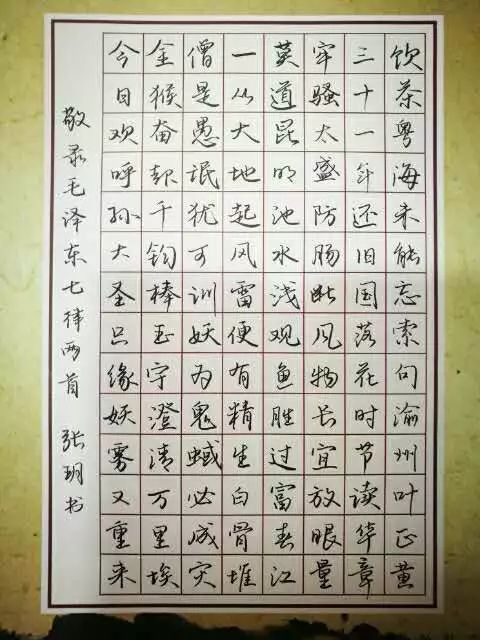 饮茶粤海未能忘索句渝州叶正黄
三十一年还旧国落花时节读华章
牢骚太盛防肠断风物长宜放眼量
莫道昆明池水浅观鱼胜过富春江
一从大地起风雷便有精生白骨堆
僧是愚氓犹可训妖为鬼蜮必成灾
金猴奋起千钧棒玉宇澄清万里埃
今日欢呼孙大圣只缘妖雾又重来
敬录毛泽东七律两首 张玥书